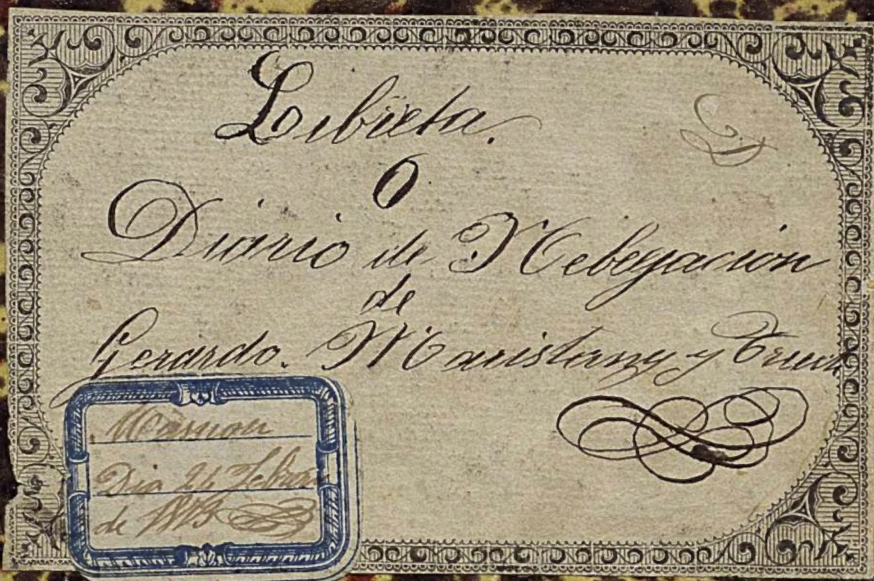 Libreta.
O
Diario de Nebegacion
de
Gerardo. Maristany y
Masnou
Dia 24 Febre
de